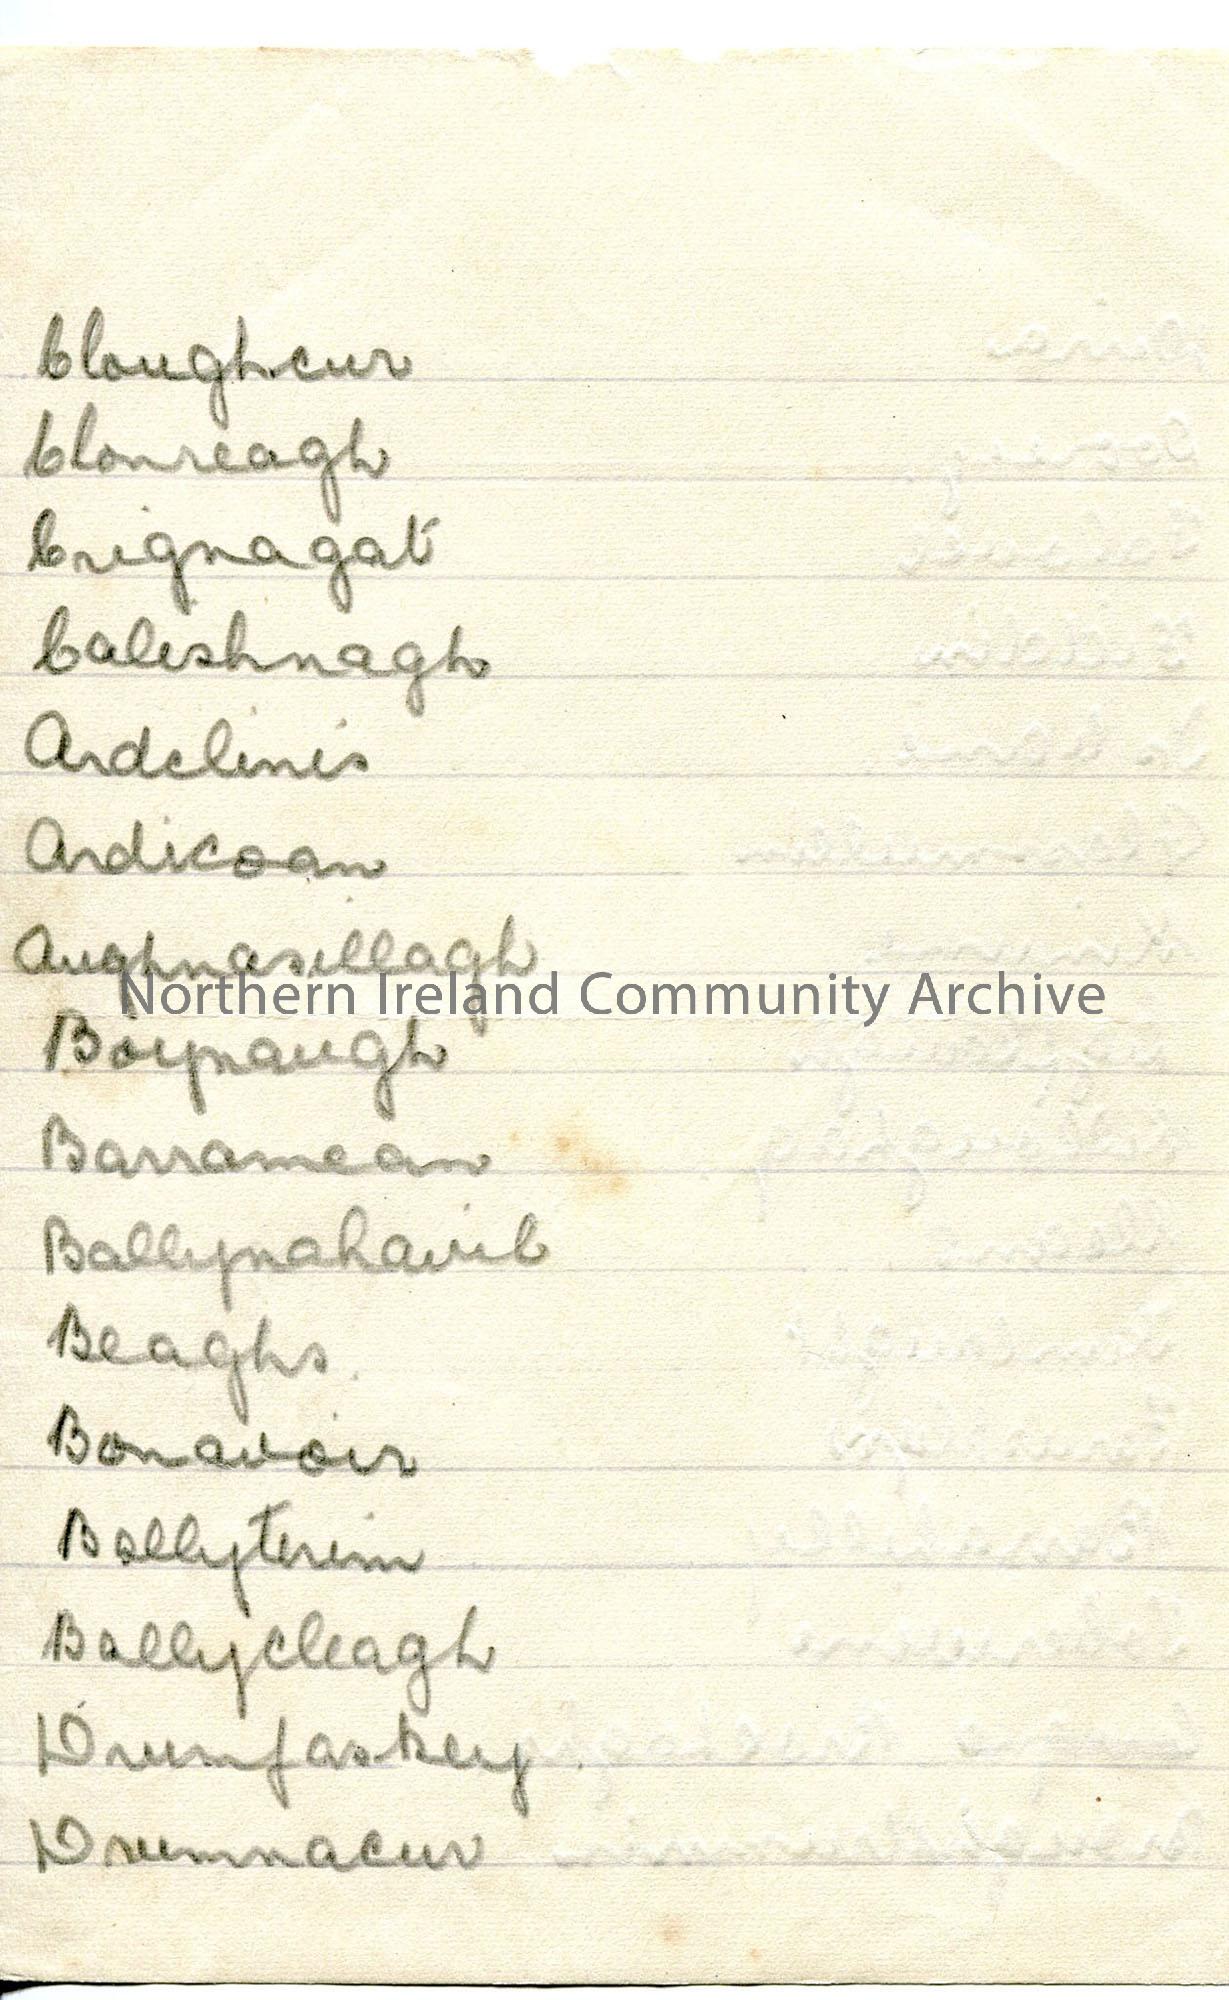 Cloughcur
Clonreagh
Crignagat
Caleshnagh
Ardclinis
Ardicoan
Aughnasillagh
Northern Ireland Community Archive
Boynaugh
Barramean
Ballynahavil
Beaghs
Bonavoir
Ballyterim
Ballycleagh
Drumfaskey
Drumnacur